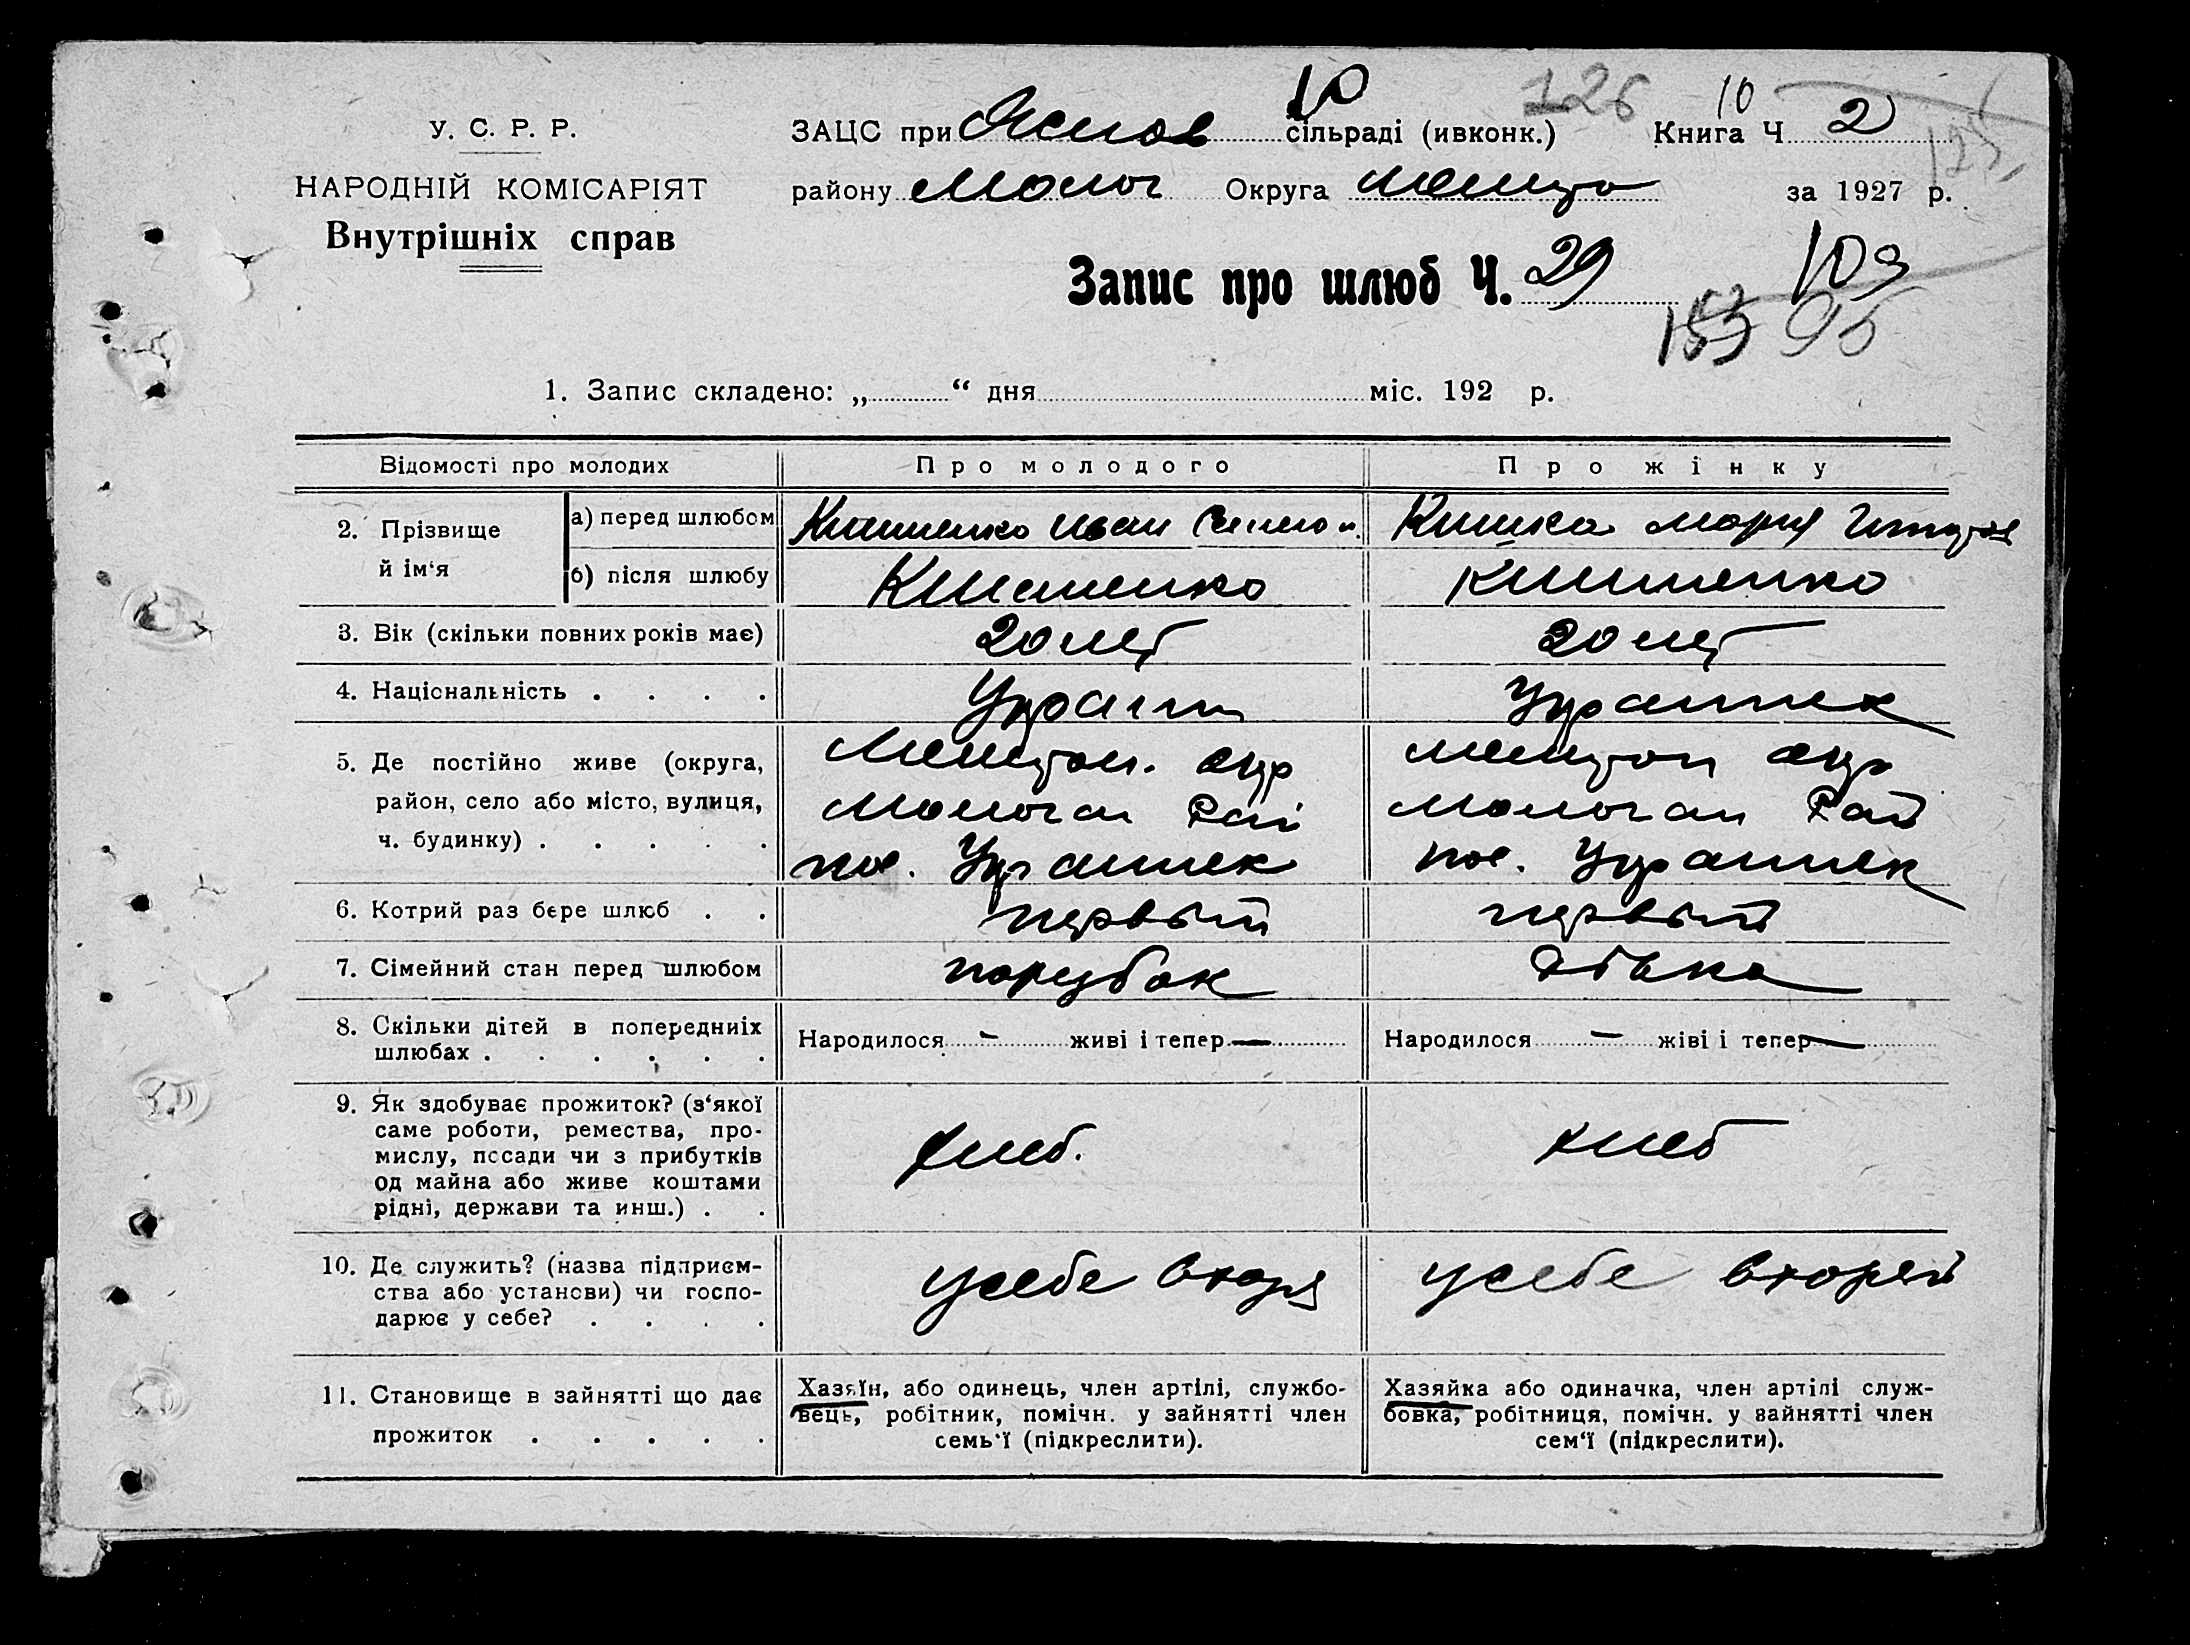 10
126
10
У. С. Р. Р.
ЗАЦС при Яснов сільраді (ивконк.) Книга Ч. 2
НАРОДНІЙ КОМІСАРІЯТ
району Молоч Округа Мелито за 1927 р.
Внутрішніх справ
Запис про шлюб Ч. 29
109
153 95
1. Запис складено: „ “ дня міс. 192 р.
Відомості про молодих Про молодого Про жінку
2. Прізвище й ім‘я
а) перед шлюбом Кишненко Иван Кишка Мария
б) після шлюбу Кишненко Кишненко
3. Вік (скільки повних років має) 20 лет 20 лет
4. Національність . . . . Украин Украинск
5. Де постійно живе (округа, Мелитоп. окр Мелитоп окр
район, село або місто, вулиця, Молочан Рай Молочан Рай
ч. будинку) . . . . . пос. Украинск пос. Украинск
6. Котрий раз бере шлюб . . первый первый
7. Сімейний стан перед шлюбом парубок дівка
8. Скільки дітей в попередниіх Народилося – живі і тепер — Народилося – жіві і тепер —
шлюбах . . . . . .
9. Як здобуває прожиток? (з‘якої
саме роботи, ремества, про-
мислу, посади чи з прибутків хлеб. хлеб
од майна або живе коштами
рідні, держави та инш.) . .
10. Де служить? (назва підприєм-
ства або установи) чи госпо- у себе у себе
дарює у себе? . . . .
11. Становище в зайнятті що дає Хазяїн, або одинець, член артілі, службо- Хазяйка або одиначка, член артілі служ-
вець, робітник, помічн. у зайнятті член бовка, робітниця, помічн. у зайнятті член
прожиток . . . . . семь‘ї (підкреслити). сем‘ї (підкреслити).